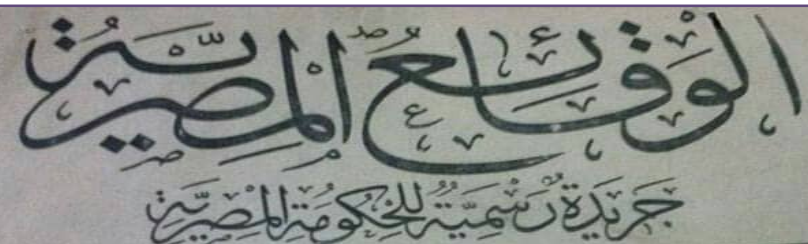 الوقائع المصرية
جريدة رسمية للحكومة المصرية